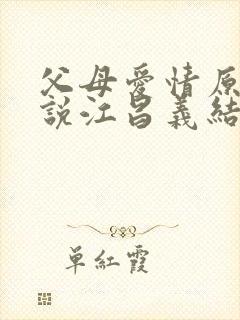 父母愛情原
說江昌義結
单紅霞